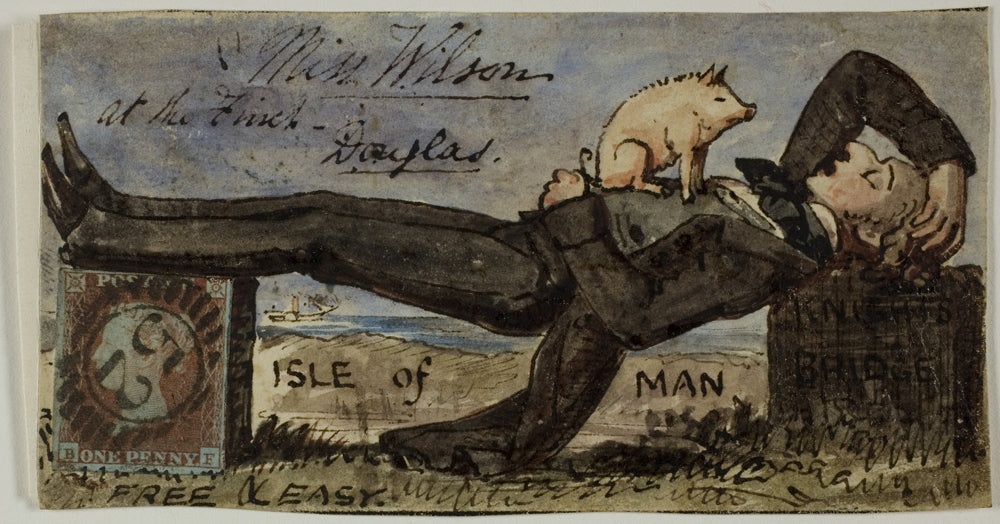 Miss Wilson
at the Finch
Douglas.
POSTAGE
ISLE of MAN
KNIGHTS
BRIDGE
B ONE PENNY F
FREE & EASY.